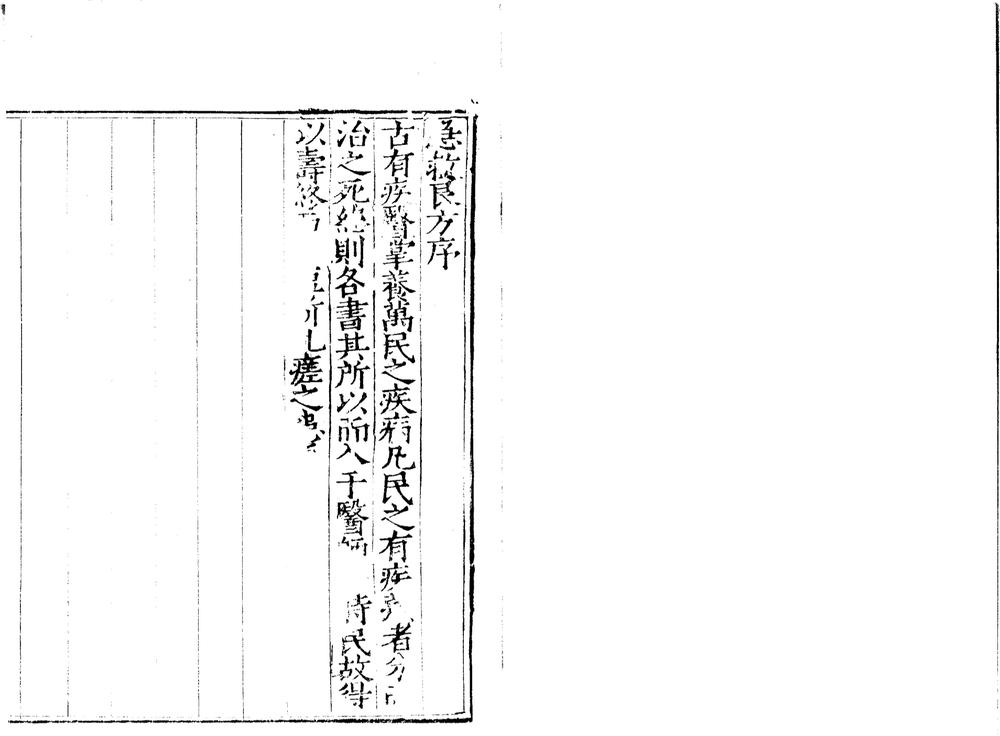 急救良方序
古有疾醫掌養萬民之疾病凡民之有疾者分
治之死終則各書其所以而入于醫師 時民故得
以壽終 札瘥之